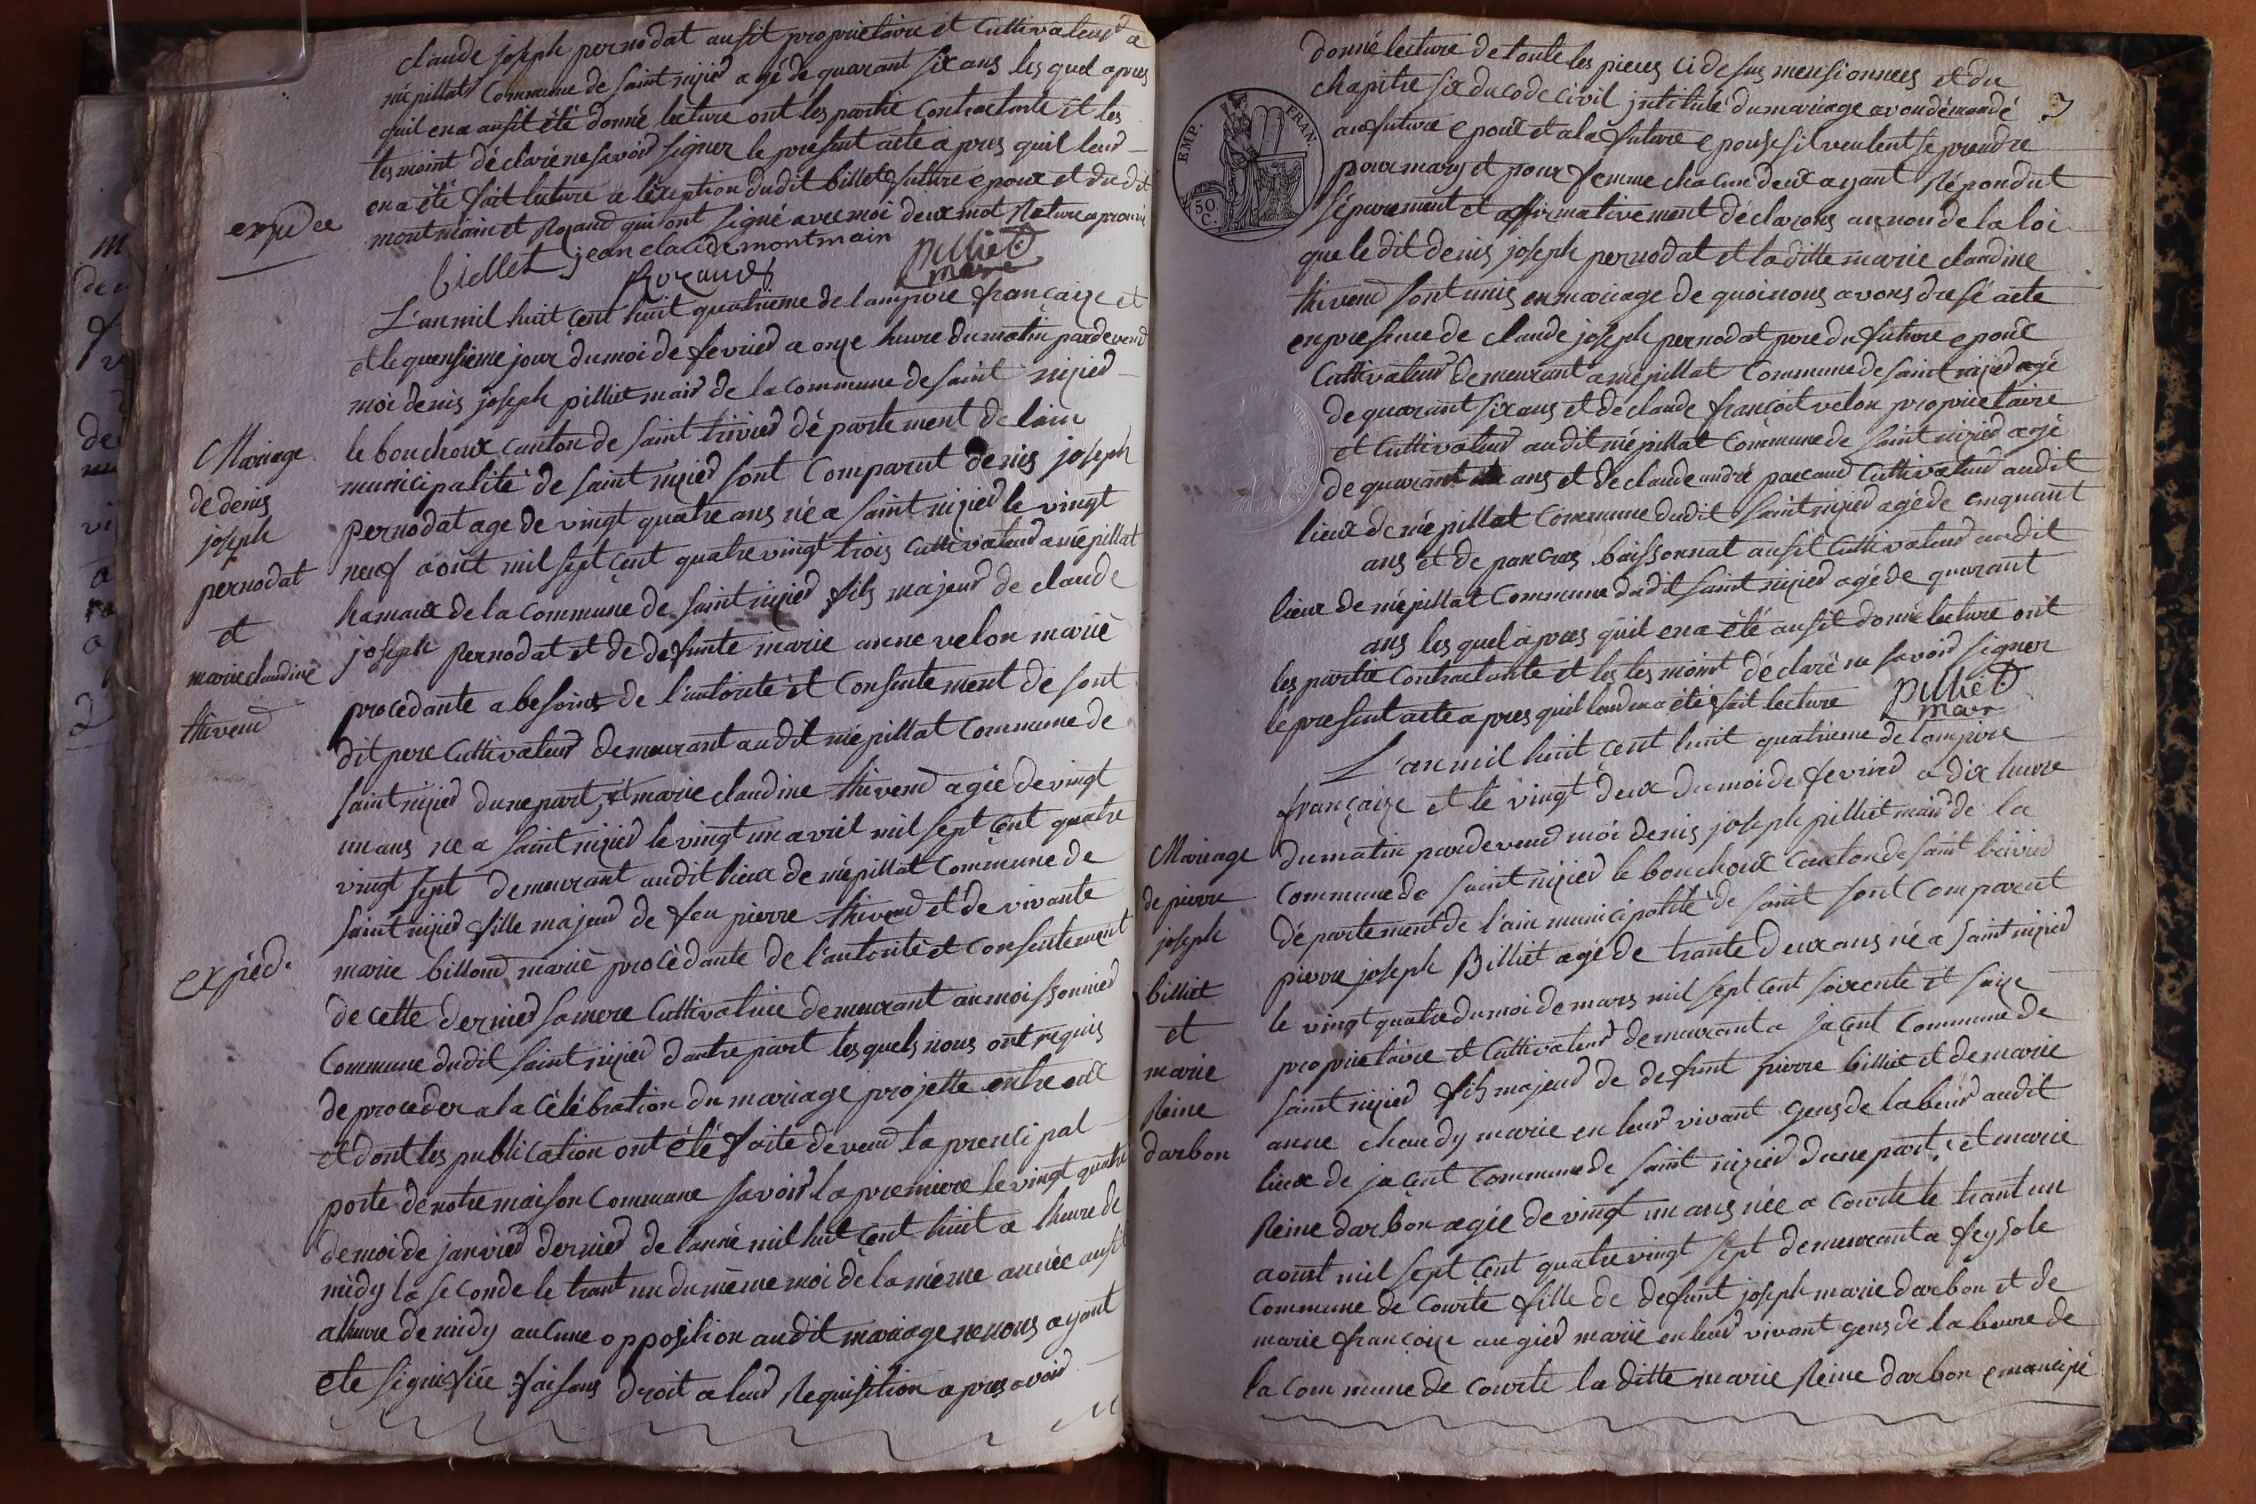 claude joseph pernodat ausit proprietaire et Cultivateur a
mépillat Commune de saint nizier agé de quarant six ans les quel apres
quil en a ausit été donné lecture ont les partie Contractante et les
tesmoint déclaré ne savoir signer le present acte apres quil leur
en a été fait lecture a léxeption dudit billet futture époux et du dit
montmain et Rozand qui ont signé avec moi deux mot Rature aprouvé
expédee
billet jean claude montmain
Rozand pilliet
maire
L'an mil huit çent huit quatrieme de lampire françaize et
et le quensieme jour du moi de fevrier a onze heure du matin pardevend
moi denis joseph pilliet mair de la commune de saint nizier
le bouchoux canton de saint trivier département de lain
municipalité de saint nizier sont Comparut denis joseph
pernodat age de vingt quatre ans né a saint nizier le vingt
neuf août mil sept çent quatre vingt trois Cultivateur a mépillat
hamaux de la commune de saint nizier fils majeur de claude
joseph pernodat et de defunte marie anne velon marié
procédante a besoint de l'autorité et Consentement de sont
dit pere Cultivateur demeurant au dit mépillat Commune de
saint nizier dune part, et marie claudine thivend agée de vingt
un ans né a saint nizier le vingt un avril mil sept çent quatre
vingt sept demeurant audit lieux de mépillat Commune de
saint nizier fille majeur de feu pierre thivend et de vivante
marie billoud marié procédante de l'autorité et consentement
de cette dernier sa mere Cultivatrice demeurant au moissonnier
Commune dudit saint nizier dautre part les quels nous ont requis
de proceder a la célébration du mariage projetté entre eux
et dont les publication ont été faite devend la prencipal
porte de notre maison commune savoir la premiere le vingt quatre
de moi de janvier dernier de lanné mil huit çent huit a lheure de
midy la seconde le trant un du même moi de la même année ausit
a lheure de midy aucune opposition au dit mariage ne nous ayant
été signifiée faisant droit a leur Requisition apres avoir
Mariage
de denis
joseph
pernodat
et
marie claudine
thivend
expéd.
7
EMP. FRAN.
50 C.
donné lecture de toute les pieces ci desus mensionnees et du
chapitre six du code civil intitulé du mariage avon démandé
au future epoux et a la future epouse sil veulent se prendre
pour mary et pour femme chacun deux ayant Répondut
séparement et affirmativement déclarons au non de la loi
que le dit denis joseph pernodat et la ditte marie claudine
thivend sont unis en mariage de quoi nous avons dresé acte
en presence de claude joseph pernodat pere du future epoux
Cultivateur demeurant a mépillat Commune de saint nizier agé
de quarant six ans et de claude françoit velon proprietaire
et Cultivateur au dit mépillat Commune de saint nizier agé
de quarant ans et de claude andré paccaud Cultivateur audit
lieux de mépillat Commune dudit saint nizier agé de cinquant
ans et de pancras boissonnat ausit Cultivateur audit
lieux de mépillat Commune dudit saint nizier agé de quarant
ans les quel apres quil en a été ausit donné lecture ont
les partie Contractante et les tes moint déclaré ne savoir signer
le present acte apres quil leur en a été fait lecture pilliet
mair
L'an mil huit çent huit quatrieme de lampire
françaize et le vingt deux du moi de fevrier a dix heure
du matin pardevend moi denis joseph pilliet mair de la
Commune de saint nizier le bouchoux Canton de saint trivier
département de l'ain municipalité de saint sont Comparut
pierre joseph Billiet agé de trante deux ans né a saint nizier
le vingt quatre du moi de mars mil sept çent soixente et saize
proprietaire et Cultivateur demeurant a jacent Commune de
saint nizier fils majeur de defunt pierre billiet et de marie
anne chaudy marié en leur vivant gens de labeur audit
lieux de jacent Commune de saint nizier dune part, et marie
Reine darbon agée de vingt un ans née a Courte le trant un
aoust mil sept çent quatre vingt sept demeurant a feysole
Commune de Courte fille de defunt joseph marie darbon et de
marie françoize augier marié en leur vivant gens de labeure de
la commune de courte la ditte marie Reine darbon emancipé
Mariage
de pierre
joseph
billiet
et
marie
Reine
darbon